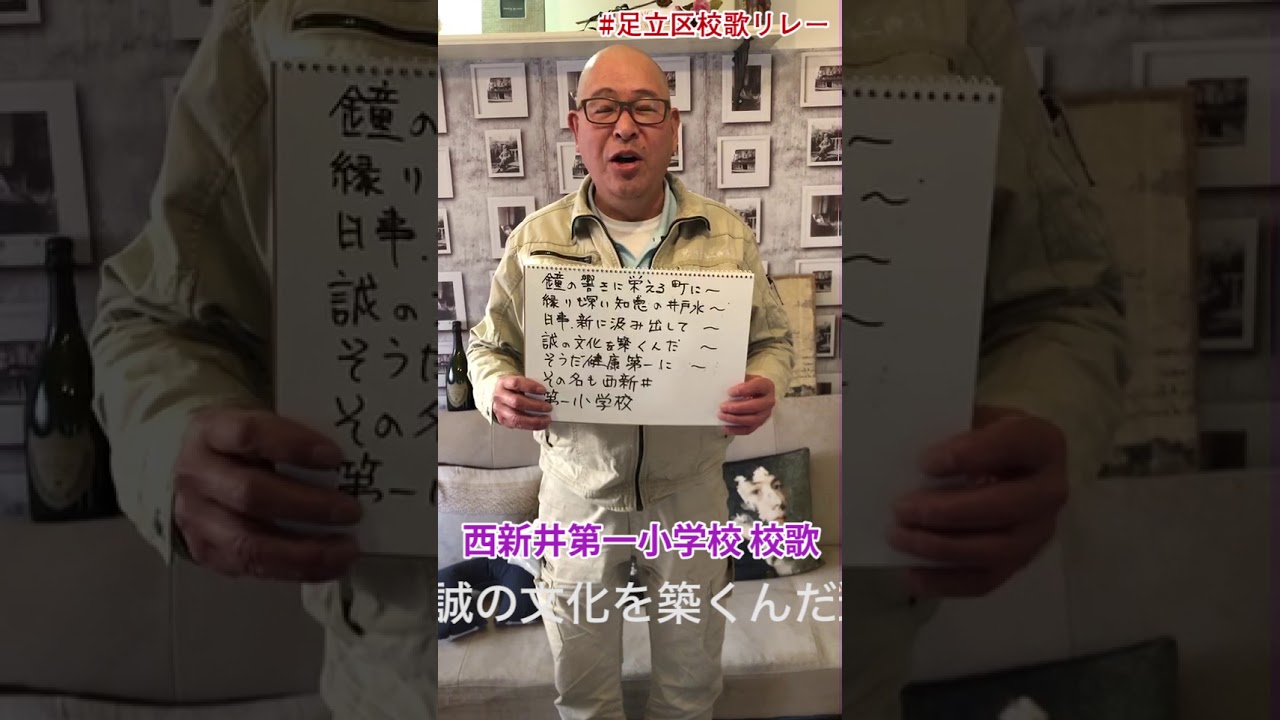 #足立区校歌リレー
鐘の響きに栄える町に〜
縁り深い知恵の井戸水〜
日事.新に汲み出して 〜
誠の文化を築くんだ 〜
そうだ健康第一に 〜
その名も西新井
第一小学校
西新井第一小学校 校歌
誠の文化を築くんだ